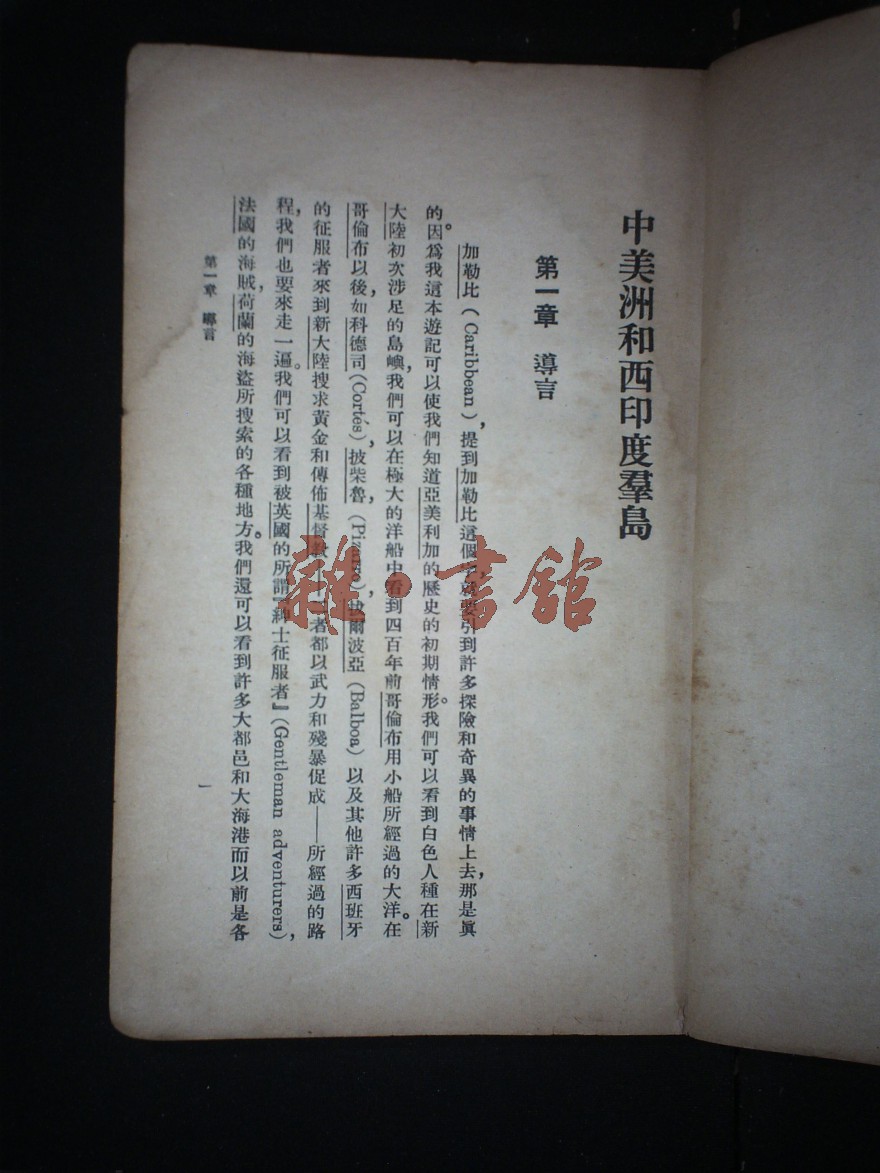 中美洲和西印度羣島
第一章 導言
加勒比(Caribbean),提到加勒比這個字就要引到許多探險和奇異的事情上去,那是眞
的。因爲我這本遊記可以使我們知道亞美利加的歷史的初期情形。我們可以看到白色人種在新
大陸初次涉足的島嶼,我們可以在極大的洋船中看到四百年前哥倫布用小船所經過的大洋。在
哥倫布以後,如科德司(Cortés),披柴魯(Pizarro),拔爾波亞(Balboa)以及其他許多西班牙
的征服者來到新大陸搜求黃金和傳佈基督教 者都以武力和殘暴促成——所經過的路
程,我們也要來走一遍。我們可以看到被英國的所謂『紳士征服者』(Gentleman adventurers),
法國的海賊,荷蘭的海盜所搜索的各種地方。我們還可以看到許多大都邑和大海港而以前是各
第一章 導言
一
雜·書館